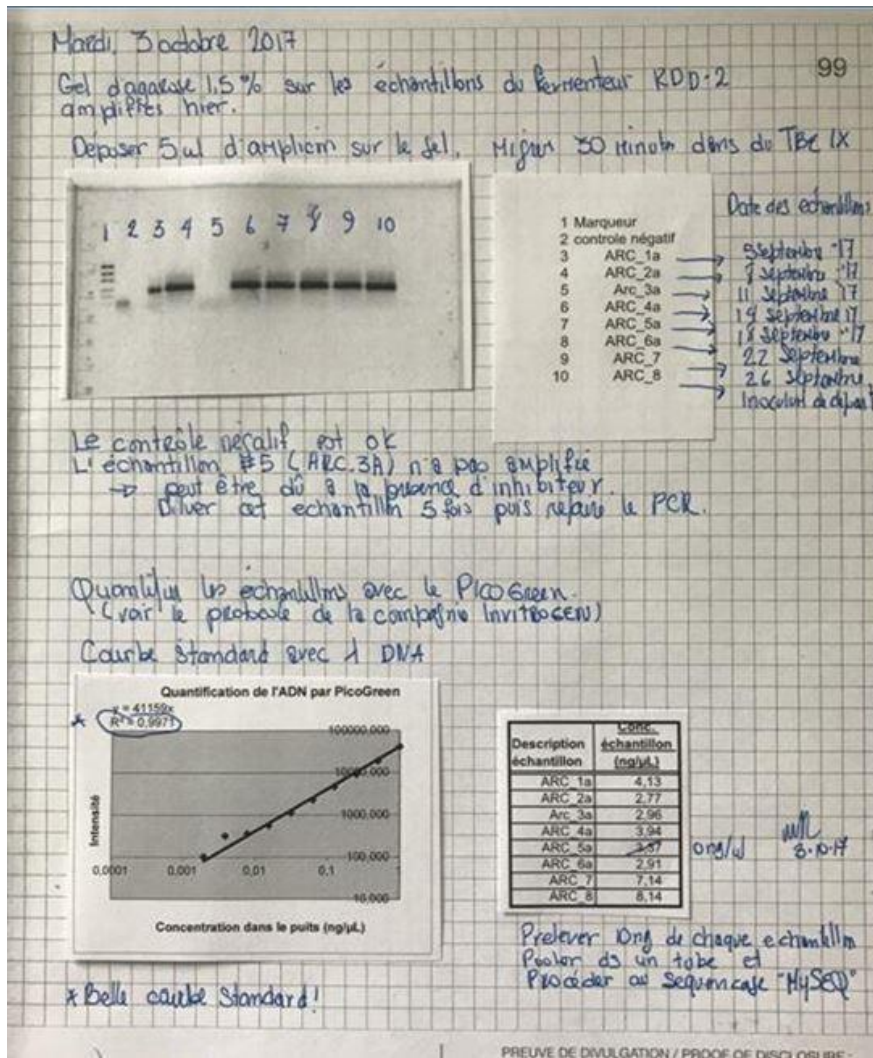 Mardi, 3 octobre 2017
99
Gel d'agarose 1,5 % sur les échantillons du fermenteur RDD-2
amplifiés hier.
Déposer 5 ul d'amplicon sur le gel. Migrer 30 minutes dans du TBE 1X
1 2 3 4 5 6 7 8 9 10
Date des échantillons
1 Marqueur
2 controle négatif
3 ARC_1a
4 ARC_2a
5 Arc_3a
6 ARC_4a
7 ARC_5a
8 ARC_6a
9 ARC_7
10 ARC_8
septembre -17
7 septembre -17
11 septembre 17
14 septembre 17
18 septembre -17
22 septembre
26 septembre
Inoculum de départ
Le contrôle négatif est ok
L'échantillon #5 (ARC.3A) n'a pas amplifié
→ peut être dû à la présence d'inhibiteur.
Diluer cet echantillon 5 fois puis refaire le PCR.
Quantifier les échantillons avec le PICOGreen.
(voir le protocole de la compagnie INVITROGEN)
Courbe Standard avec λ DNA
Quantification de l'ADN par PicoGreen
* y = 41159x
R² = 0,9971
100000,000
10000,000
1000,000
100,000
10,000
0,0001 0,001 0,01 0,1 1
Intensité
Concentration dans le puits (ng/µL)
* Belle courbe Standard!
Description échantillon Conc. échantillon (ng/µL)
ARC_1a 4,13
ARC_2a 2,77
Arc_3a 2,96
ARC_4a 3,94
ARC_5a 0 ng/ul
ARC_6a 2,91
ARC_7 7,14
ARC_8 8,14
3-10-17
Prelever 10ng de chaque echantillon
Pooler ds un tube et
Procéder au Sequencage "MySEQ"
PREUVE DE DIVULGATION / PROOF OF DISCLOSURE: